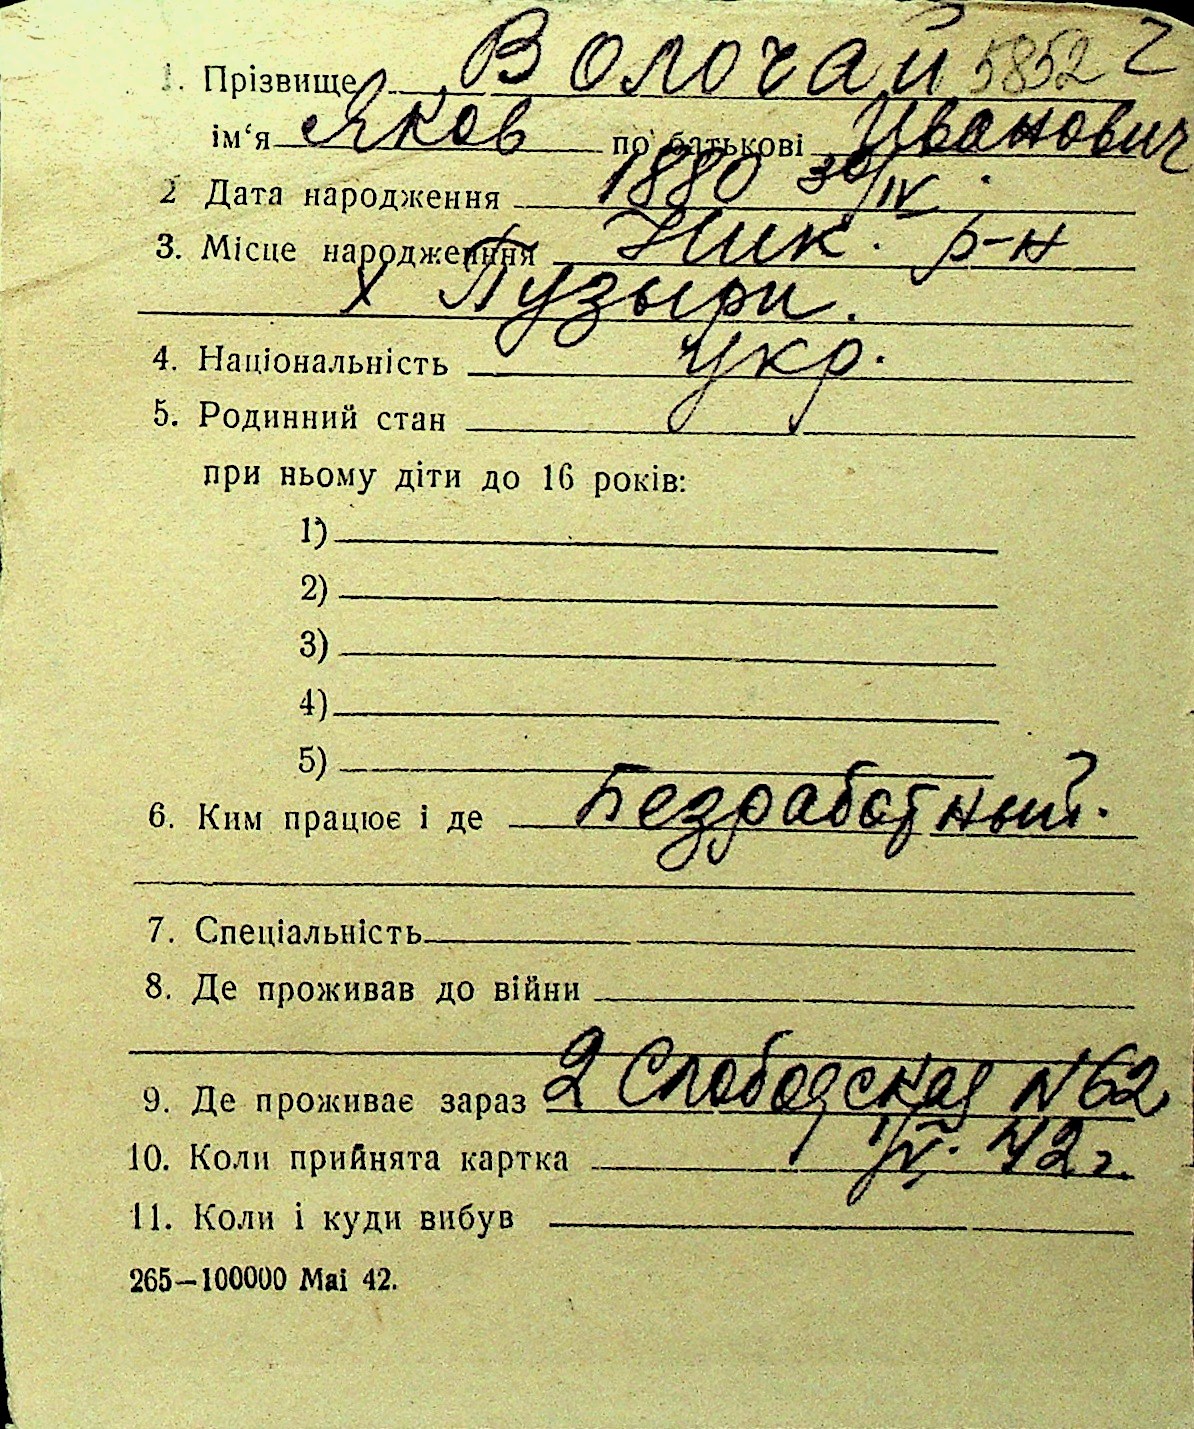 1. Прізвище Волочай 5852 2
ім‘я Яков по батькові Иванович
2 Дата народження 1880 30/IV.
3. Місце народженння Ник. р-н
х Пузыри.
4. Національність Укр.
5. Родинний стан
при ньому діти до 16 років:
1)
2)
3)
4)
5)
6. Ким працює і де Безработный.
7. Спеціальність
8. Де проживав до війни
9. Де проживає зараз 2 Слободская N 62
10. Коли прийнята картка 42 г.
11. Коли і куди вибув
265—100000 Mai 42.